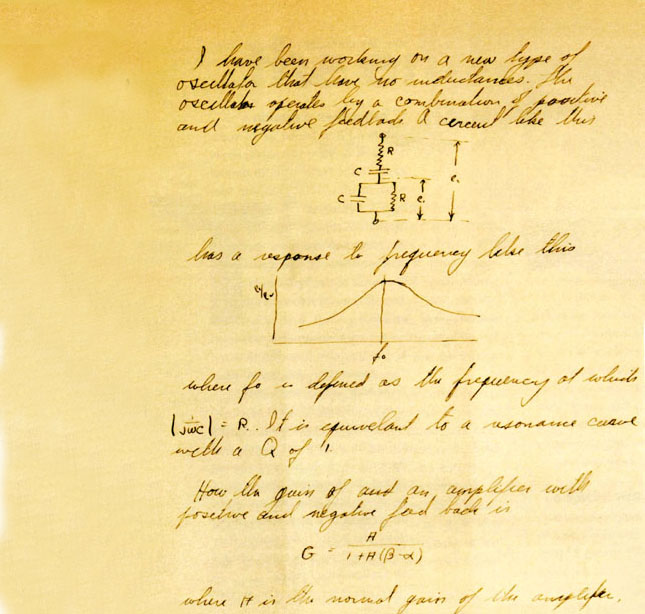 I have been working on a new type of
oscillator that have no inductances. The
oscillator operates by a combination of positive
and negative feedback A circuit like this
R
C
C R e₁ e₀
has a response to frequency like this
e₁/e₀
fo
where fo is defined as the frequency at which
|1/jωc| = R.. It is equivelant to a resonance curve
with a Q of 1
Now the gain of an amplifier with
positive and negative feed back is
G = A / 1+A(β-α)
where A is the normal gain of the amplifier.